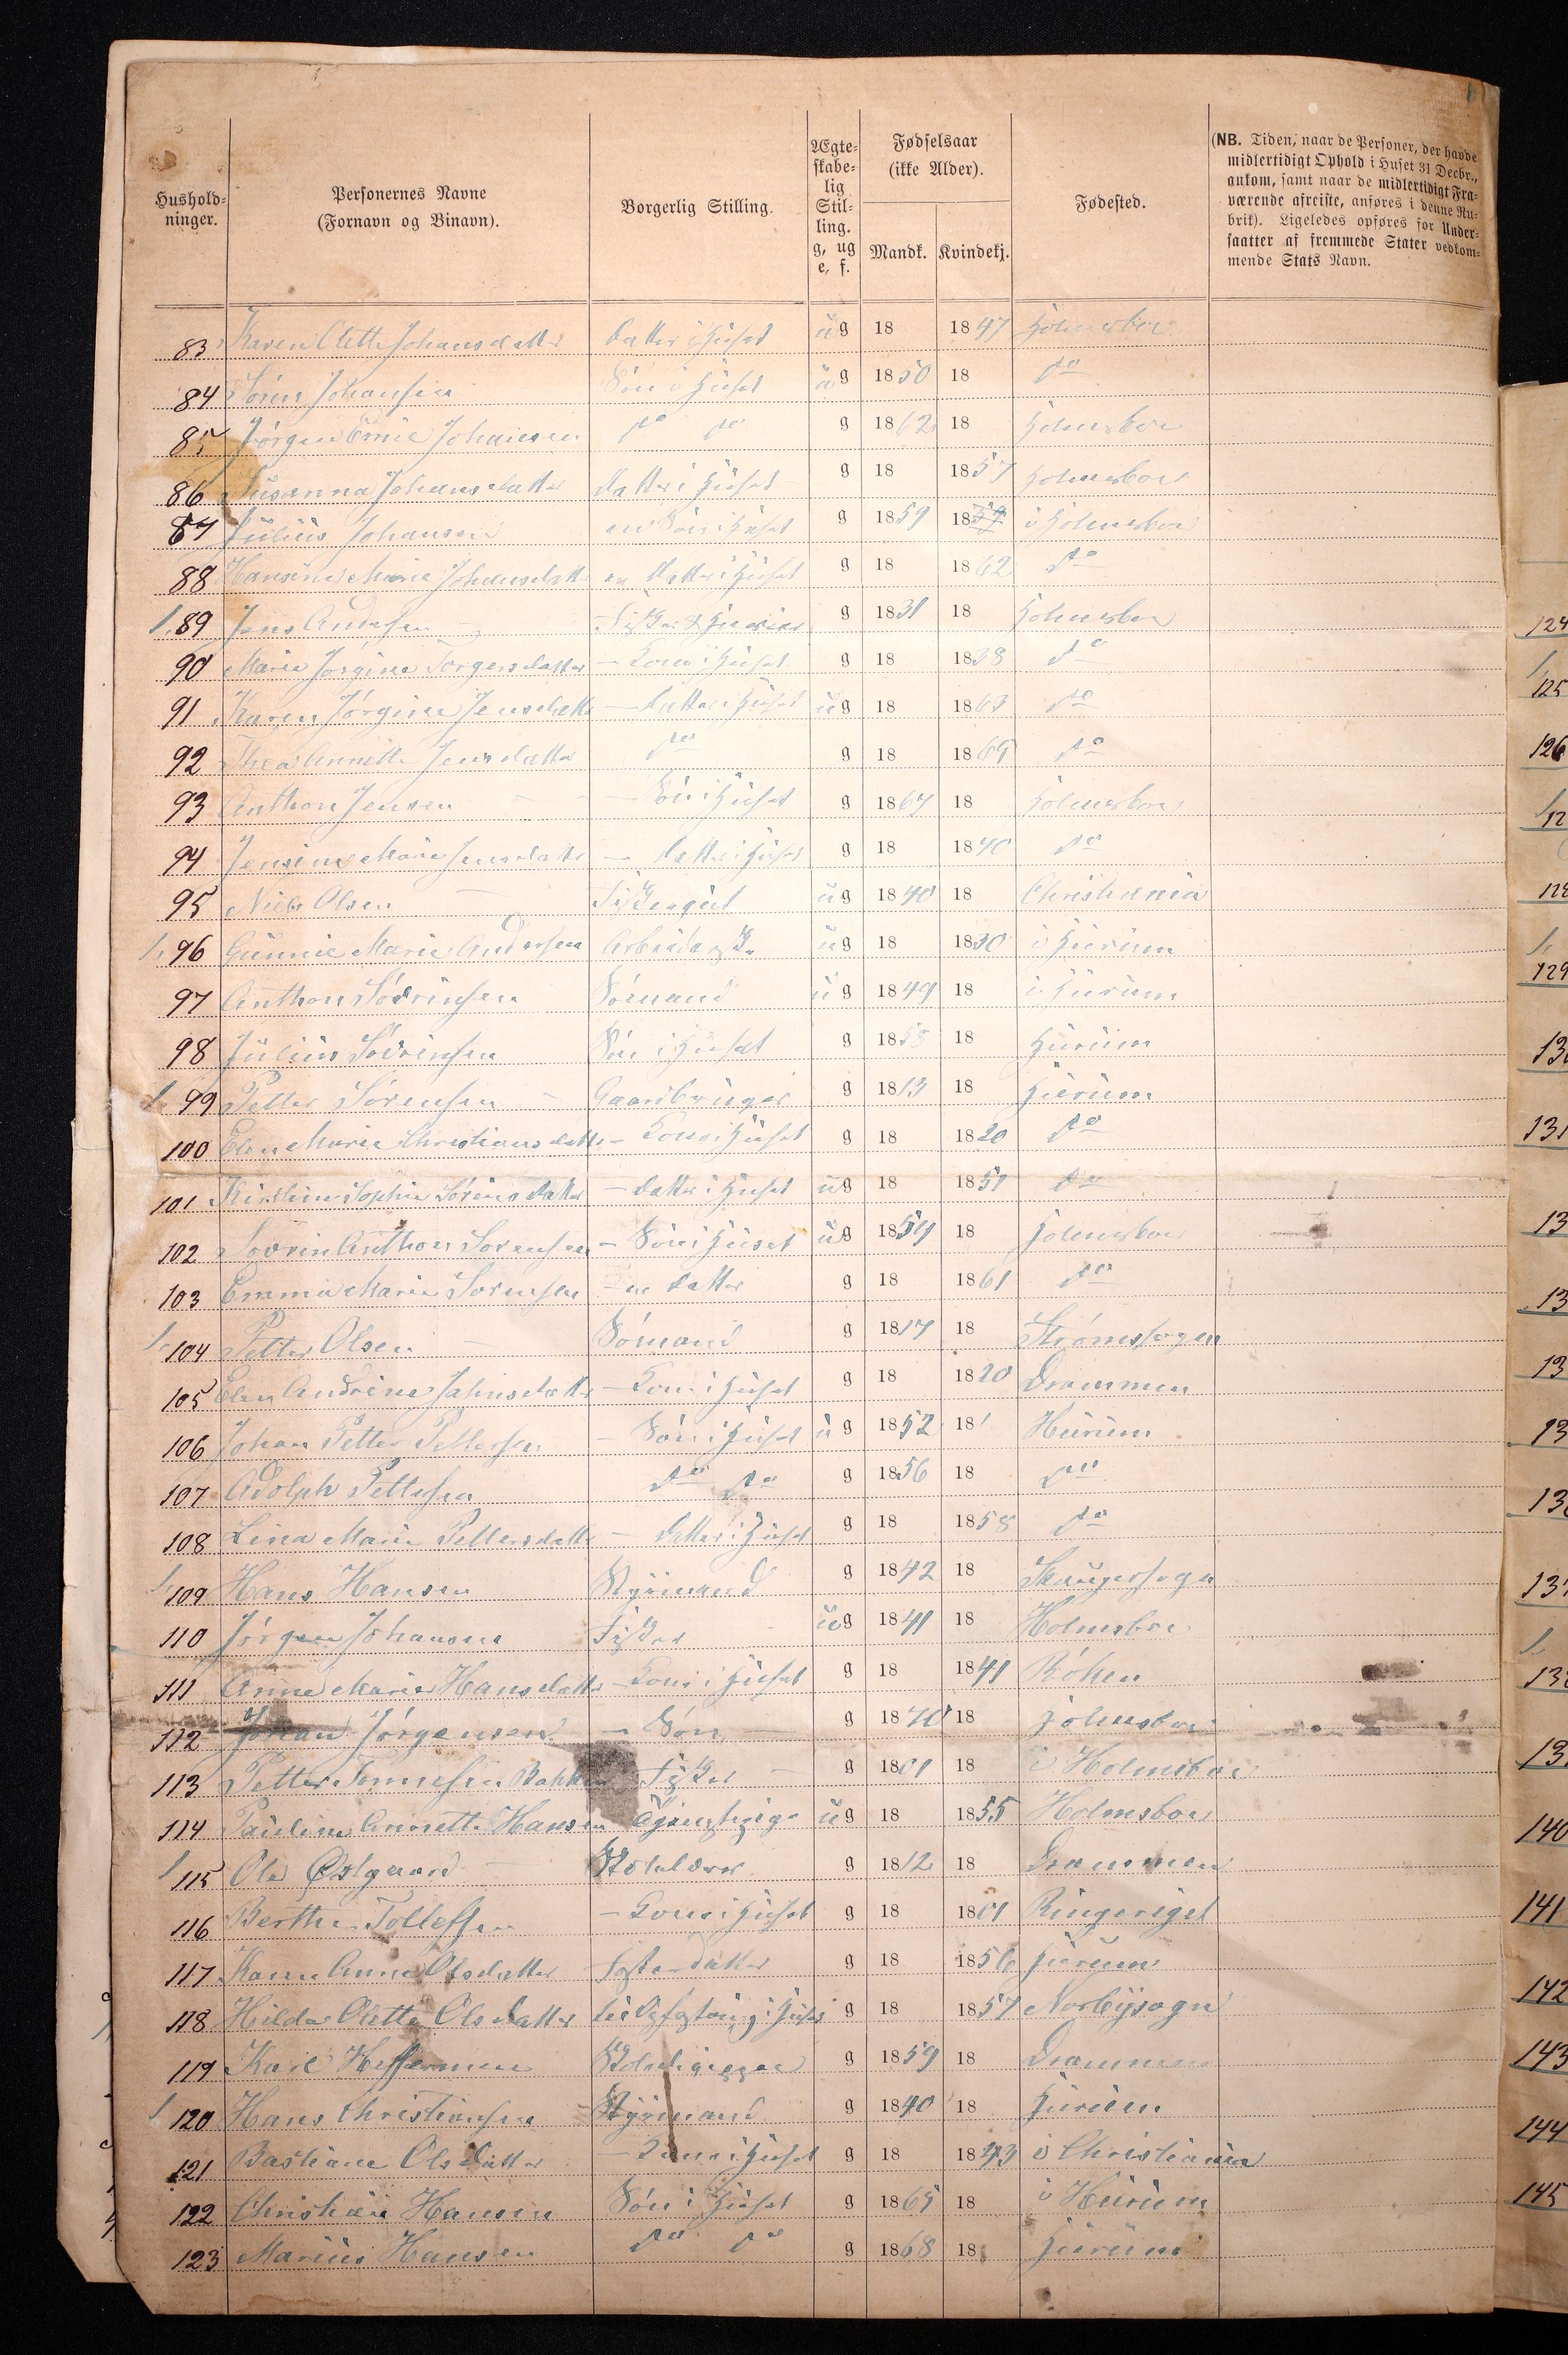 Hushold-
ninger.
Personernes Navne
(Fornavn og Binavn).
Borgerlig Stilling.
Ægte-
skabe-
lig
Stil-
ling.
g, ug
e, f.
Fødselsaar
(ikke Alder).
Mandk.
Kvindekj.
Fødested.
(NB. Tiden, naar de Personer, der havde
midlertidigt Ophold i Huset 31 Decbr.,
ankom, samt naar de midlertidigt Fra-
værende afreiste, anføres i denne Ru-
brik). Ligeledes opføres for Under-
saatter af fremmede Stater vedkom-
mende Stats Navn.
83 Karen Olette Johansdatter datter i Huset ug 18 1847 Holmsboe
84 Søren Johansen Søn i Huset ug 1850 18 do
85 Jørgen Emil Johansen do do g 1862 18 Holmsboe
86 Susanna Johansdatter datter i Huset g 18 1857 Holmsboe
87 Julius Johansen en Søn i Huset g 1859 18 i Holmsboe
88 Hansine Marie Johansdatter en datter i Huset g 18 1862 do
1. 89 Jens Andersen Fisker g 1831 18 Holmsboe
90 Marie Jørgine Torgersdatter - Kone i Huset g 18 1838 do
91 Karen Jørgine Jensdatter - datter i Huset ug 18 1863 do
92 Thea Annette Jensdatter do g 18 1865 do
93 Anthon Jensen - Søn i Huset g 1867 18 Holmsboe
94 Jensine Marie Jensdatter - datter i Huset g 18 1840 do
95 Niels Olsen Fiskergut ug 1840 18 Christiania
1. 96 Gunnie Marie Andersen ug 18 1830 i Hurum
97 Anthon Sövrinsen Sömand ug 1849 18 i Hurum
98 Julius Sövrinsen Søn i Huset g 1858 18 Hurum
1. 99 Petter Sörensen Gaardbruger g 1813 18 Hurum
100 Elen Marie Christiansdatter - Kone i Huset g 18 1820 do
101 Kirstine Sophie Sörensdatter - datter i Huset ug 18 1851 do
102 Sovrin Anthon Sorensen - Søn i Huset ug 1854 18 Holmsboe
103 Emma Marie Sorensen - en datter g 18 1861 do
1. 104 Petter Olsen Sömand g 1817 18 Strömsfogen
105 Elen Andrine Jahnsdatter - Kone i Huset g 18 1820 Drammen
106 Johan Petter Pettersen - Søn i Huset u g 1852 18 Hurum
107 Adolph Pettersen do do g 1856 18 do
108 Lina Marie Pettersdatter - datter i Huset g 18 1858 do
1. 109 Hans Hansen Styrmand g 1842 18 Skougersogn
110 Jörgen Johansen Fisker ug 1841 18 Holmsboe
111 Anne Marie Hansdatter - Kone i Huset g 18 1841 Röken
112 Johan Jörgensen - Søn g 1870 18 Holmsboe
113 Petter Tommesen Bakken Fisker g 1801 18 i Holmsboe
114 Pauline Annette Hansen ug 18 1855 Holmsboe
1 115 Ole Østgaard g 1812 18 Drammen
116 Berthe Tollefsen - Kone i Huset g 18 1801 Ringeriget
117 Karen Anne Olsdatter datter g 18 1856 Hurum
118 Hilda Olette Olsdatter g 18 1857 Norbysogn
119 Karl Heffermen g 1859 18 Drammen
1 120 Hans Christiansen Styrmand g 1840 18 Hurum
121 Bastiane Olsdatter - Kone i Huset g 18 1843 i Christiania
122 Christian Hansen Søn i Huset g 1865 18 i Hurum
123 Marius Hansen do do g 1868 18 Hurum
124
125
126
129
131
140
141
142
143
144
145